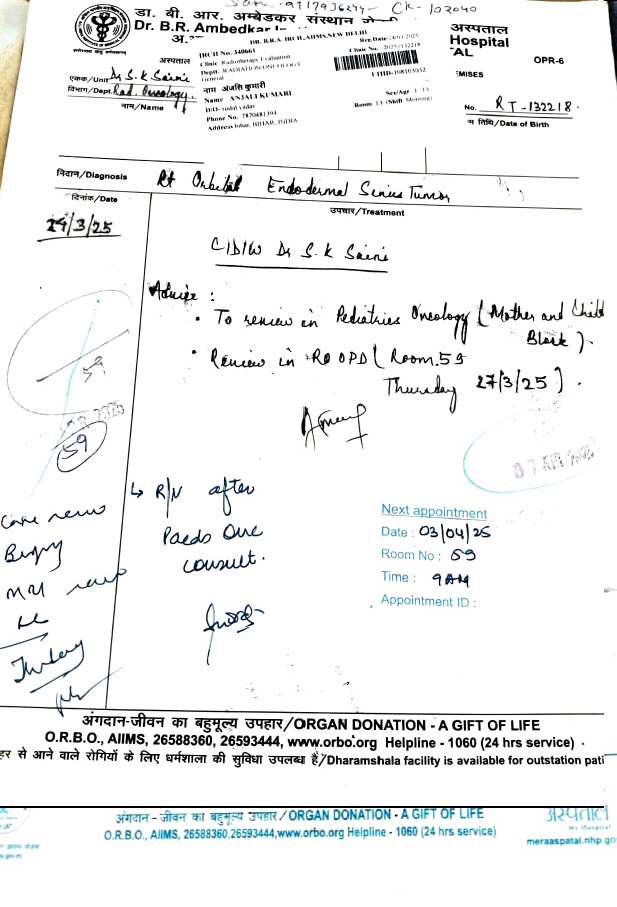 डा. बी. आर. अम्बेडकर संस्थान
Dr. B.R. Ambedkar
अस्पताल
Hospital
OPR-6
DR. B.R.A. IRCH, AIIMS, NEW DELHI
IRCH No. 340661
Reg.Date:
Clinic Radiotherapy Evaluation
Clinic No. 2025/132218
Deptt. RADIATION ONCOLOGY
General
UHID-
नाम अंजलि कुमारी
Name ANJALI KUMARI
Sex/Age
D/O- sudal yadav
Room 13 (Shift Morning)
Phone No. 7870481394
Address bihar, BIHAR, INDIA
अस्पताल
एकक/Unit Dr S. K Saini
विभाग/Dept. Rad. Oncology
नाम/Name
EMISES
No. RT-132218.
तिथि/Date of Birth
निदान/Diagnosis Rt Orbital Endodermal Sinus Tumor
दिनांक/Date
उपचार/Treatment
24/3/25
C/D/W Dr S. K Saini
Advice :
• To review in Pediatrics Oncology (Mother and Child
Block).
• Review in RO OPD (Room.59
Thursday 27/3/25).
59
2025
59
07 APR 2025
↳ R/V after
Paedo Onc
consult.
review
Biopsy
MRI review
Thursday
Next appointment
Date : 03/04/25
Room No : 59
Time : 9AM
Appointment ID :
अंगदान-जीवन का बहुमूल्य उपहार/ORGAN DONATION - A GIFT OF LIFE
O.R.B.O., AIIMS, 26588360, 26593444, www.orbo.org Helpline - 1060 (24 hrs service)
हर से आने वाले रोगियों के लिए धर्मशाला की सुविधा उपलब्ध है/Dharamshala facility is available for outstation pati
अंगदान - जीवन का बहुमूल्य उपहार/ORGAN DONATION - A GIFT OF LIFE
O.R.B.O., AIIMS, 26588360,26593444,www.orbo.org Helpline - 1060 (24 hrs service)
अस्पताल
My Hospital
meraaspatal.nhp.go